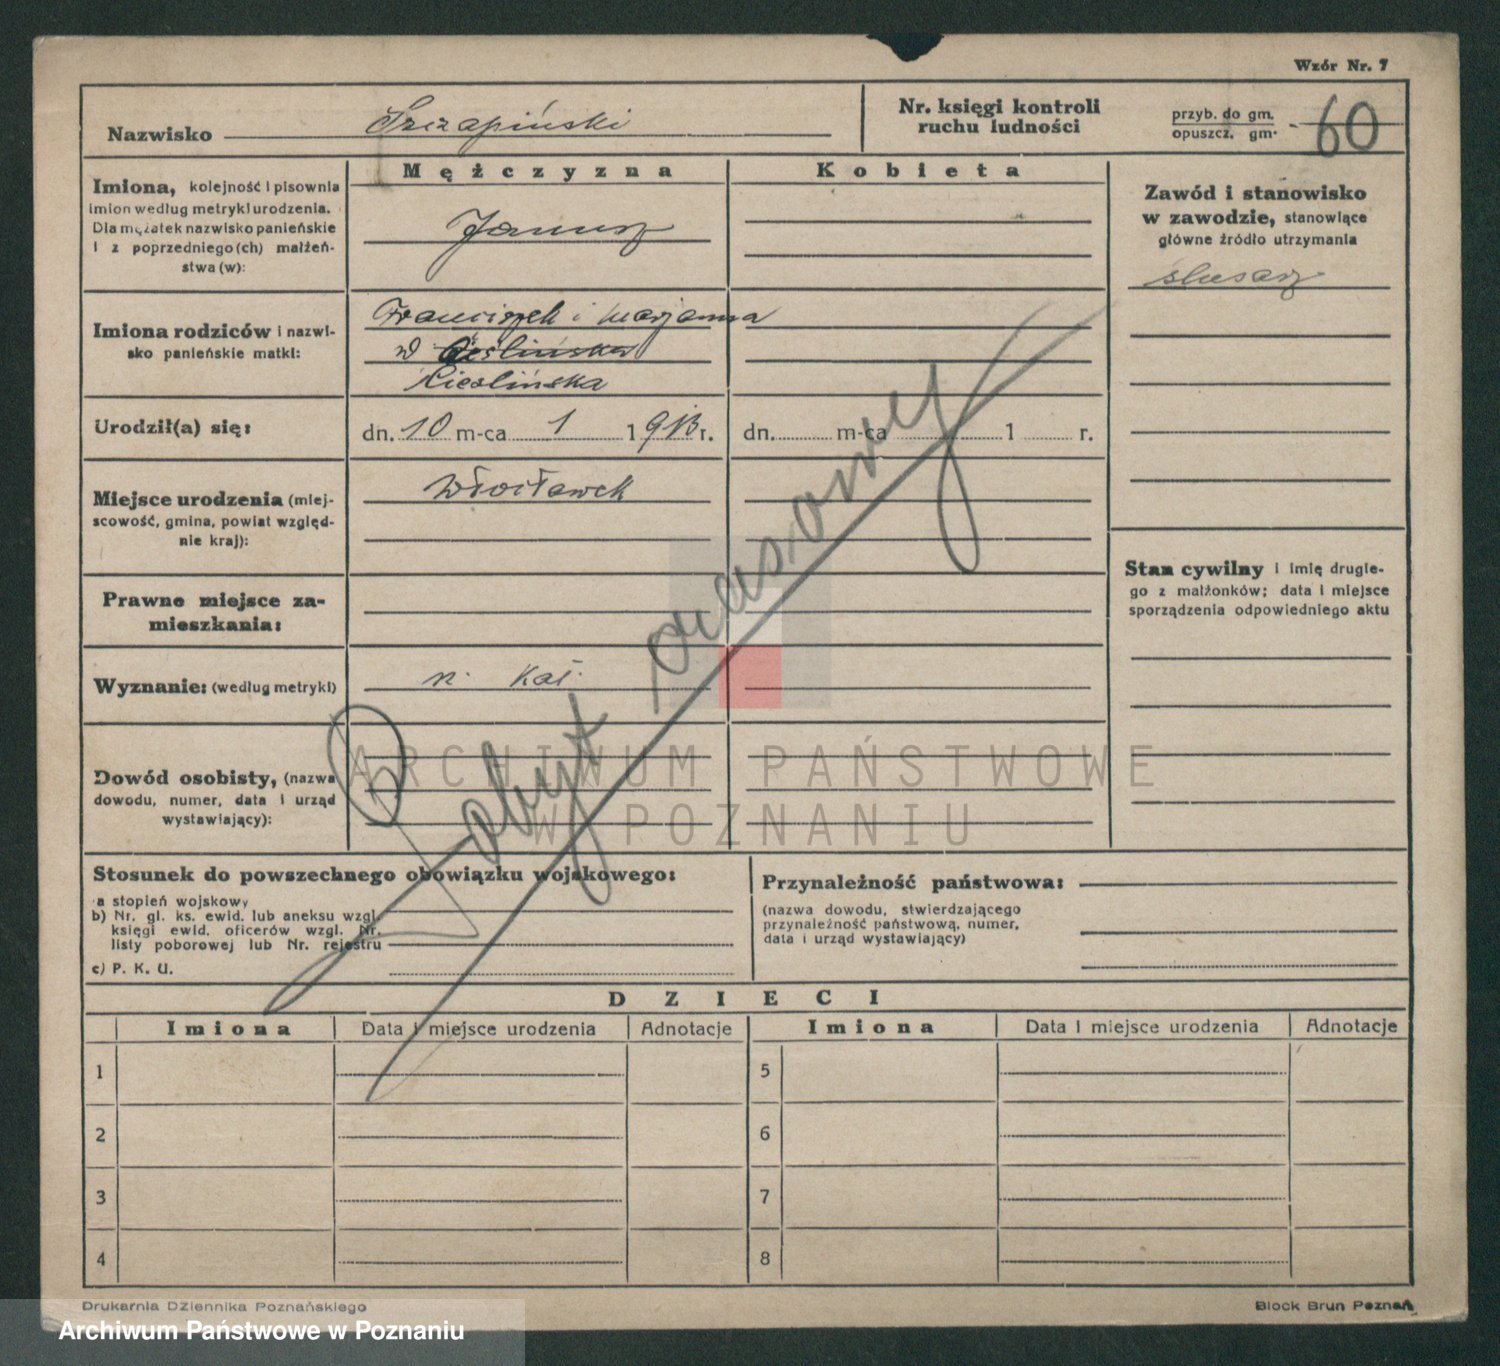 Wzór Nr. 7
Nazwisko Szczapiński
Nr. księgi kontroli
ruchu ludności
przyb. do gm.
opuszcz. gm.
60
Mężczyzna
Kobieta
Imiona, kolejność i pisownia
imion według metryki urodzenia.
Dla mężatek nazwisko panieńskie
i z poprzedniego(ch) małżeń-
stwa(w):
Janusz
Zawód i stanowisko
w zawodzie, stanowiące
główne źródło utrzymania
ślusarz
Imiona rodziców i nazwi-
sko panieńskie matki:
Franciszek i Marjanna
Cieślińska
Cieslińska
Urodził(a) się:
dn. 10 m-ca 1 1913 r.
dn. m-ca 1 r.
Miejsce urodzenia (miej-
scowość, gmina, powiat względ-
nie kraj):
Włocławek
Prawne miejsce za-
mieszkania:
Stan cywilny i imię drugie-
go z małżonków; data i miejsce
sporządzenia odpowiedniego aktu
Wyznanie: (według metryki)
r. kat.
Dowód osobisty, (nazwa
dowodu, numer, data i urząd
wystawiający):
Pobyt czasowy
ARCHIWUM PAŃSTWOWE
W POZNANIU
Stosunek do powszechnego obowiązku wojskowego:
a stopień wojskowy
b) Nr. gł. ks. ewid. lub aneksu wzgl.
księgi ewid. oficerów wzgl. Nr.
listy poborowej lub Nr. rejestru
c) P. K. U.
Przynależność państwowa:
(nazwa dowodu, stwierdzającego
przynależność państwową, numer,
data i urząd wystawiający)
DZIECI
Imiona
Data i miejsce urodzenia
Adnotacje
Imiona
Data i miejsce urodzenia
Adnotacje
1
5
2
6
3
7
4
8
Drukarnia Dziennika Poznańskiego
Block Brun Poznań
Archiwum Państwowe w Poznaniu